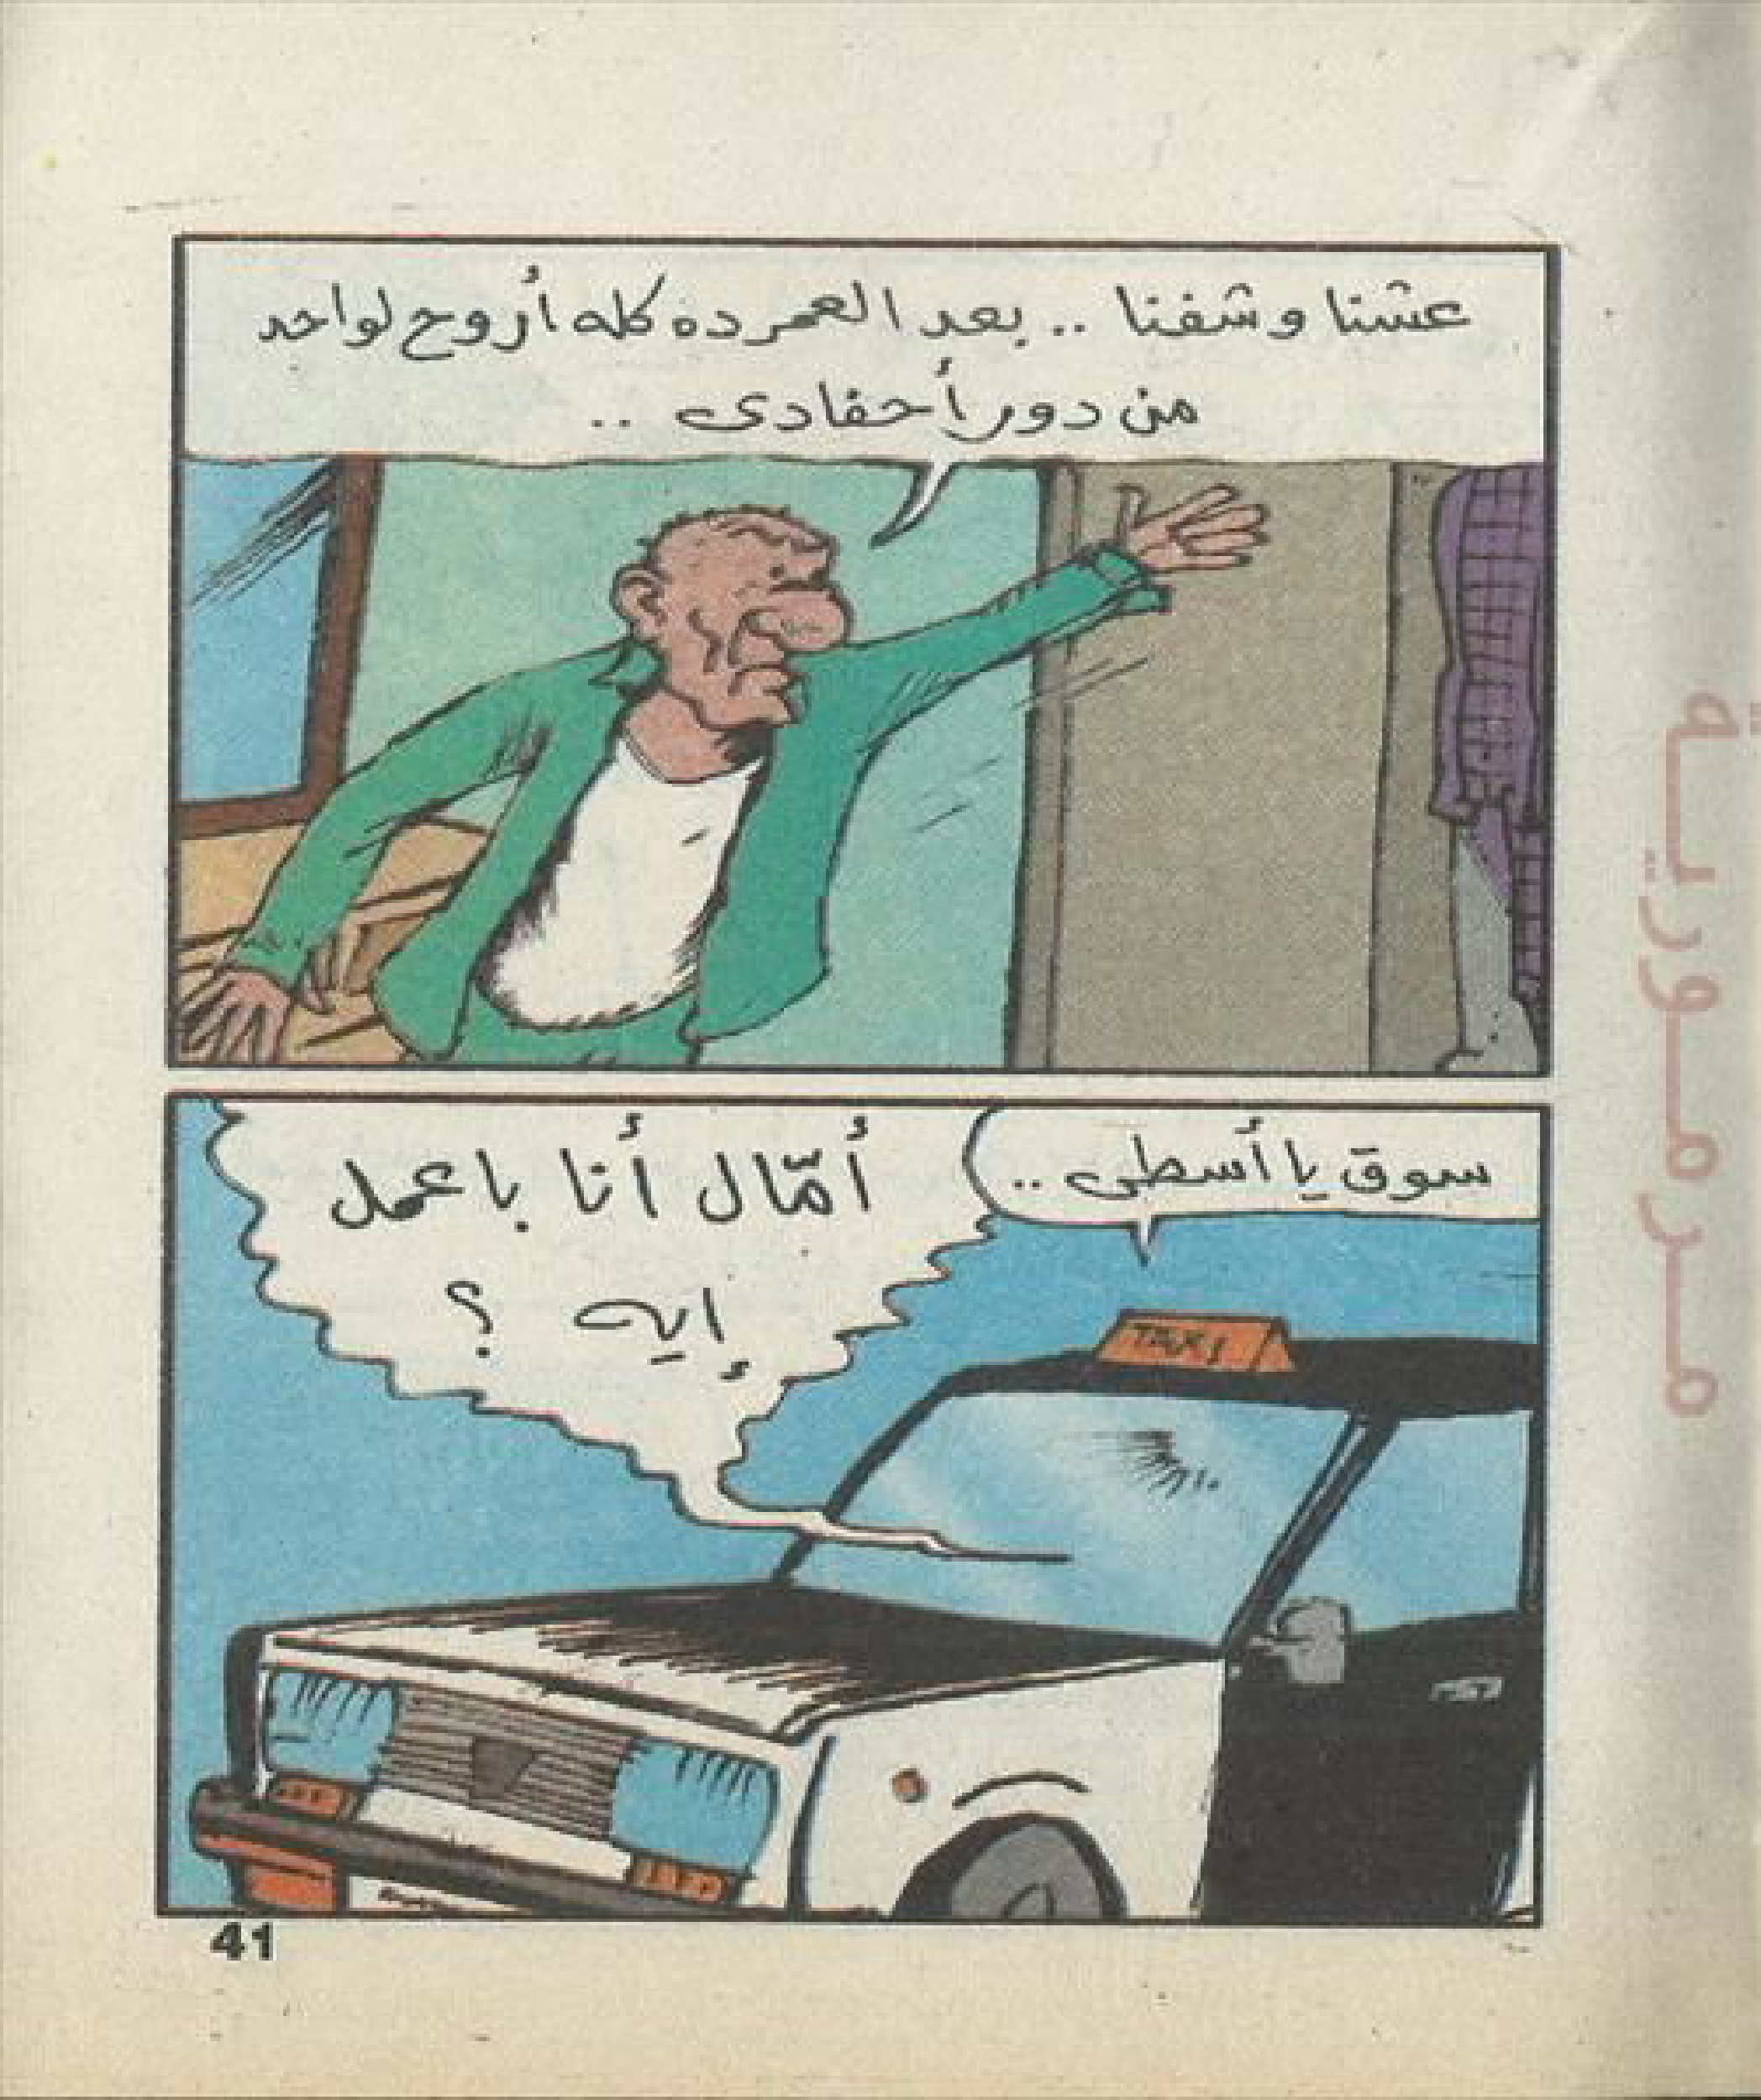 عشنا وشفنا .. بعد العمر ده كله أروح لواحد
من دور أحفادى ..
سوق يا أسطى ..
أمّال أنا باعمل
إيه ؟
TAXI
41
مرمورية